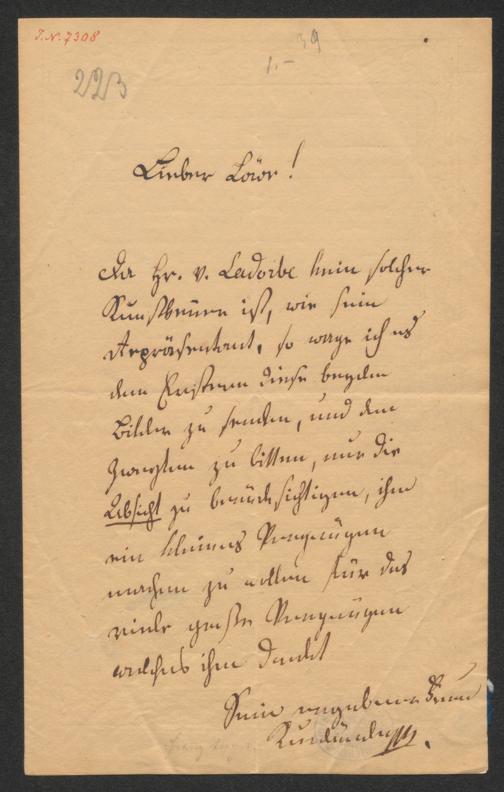 I.N. 7308
39
1.-
223
Lieber Löwe!
Da Hr. v. Ladoibe kein solcher
Kunstkenner ist, wie sein
Repräsentant, so wage ich es
dem Ersteren diese beyden
Bilder zu senden, und den
Zweyten zu bitten, nur die
Absicht zu berücksichtigen, ihm
ein kleines Vergnügen
machen zu wollen für das
viele große Vergnügen
welches ihm dankt
Sein ergebener Freund